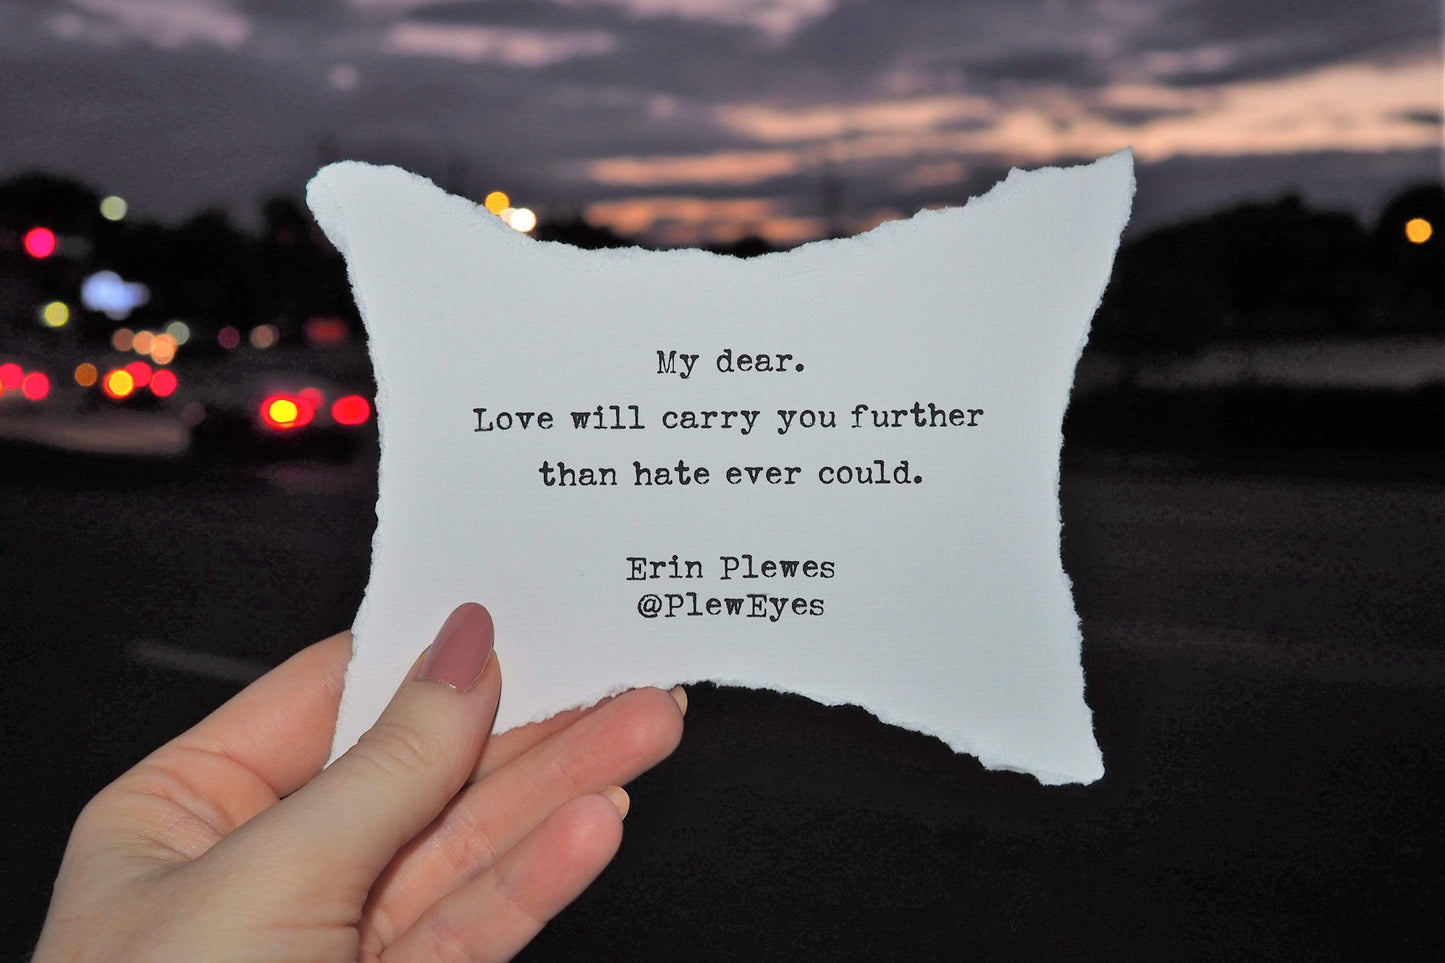 My dear.
Love will carry you further
than hate ever could.
Erin Plewes
@PlewEyes